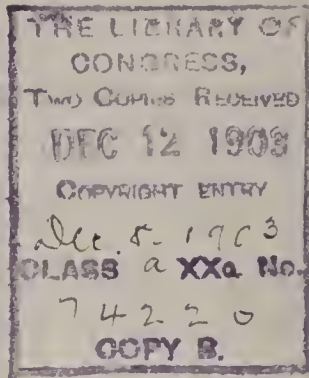 THE LIBRARY OF
CONGRESS,
TWO COPIES RECEIVED
DEC 12 1903
COPYRIGHT ENTRY
Dec. 8-1903
CLASS a XXc. No.
74220
COPY B.